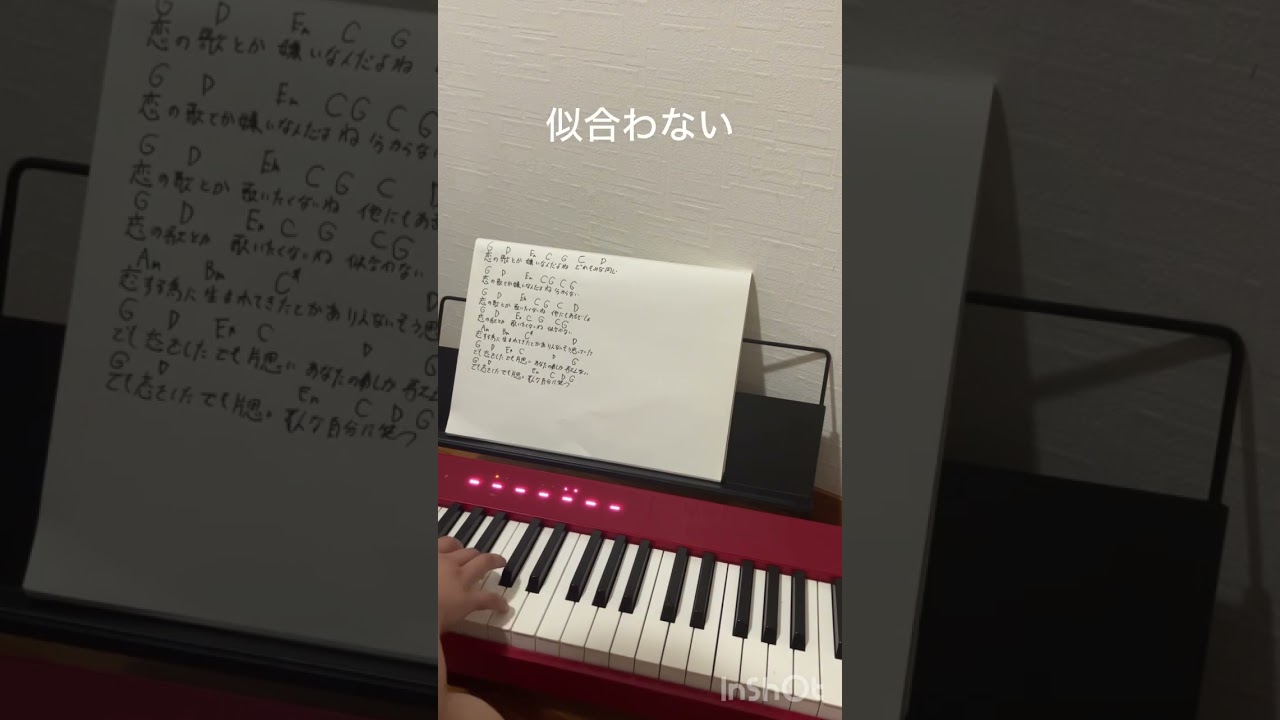 似合わない
G D Em C G C D
恋の歌とか 嫌いなんだよね どれもみな同じ
G D Em C G C G
恋の歌とか嫌いなんだよね 分からない
G D Em C G C D
恋の歌とか 歌いたくないね 他にもあるでしょ
G D Em C G C G
恋の歌とか 歌いたくないね 似合わない
Am Bm C# D
恋する為に 生まれてきたとかありえないそう思ってた
G D Em C D G
でも恋をした でも片思い あなたの前しか
G D Em C D G
でも恋をした でも片思い そんな自分に笑う
InShOt